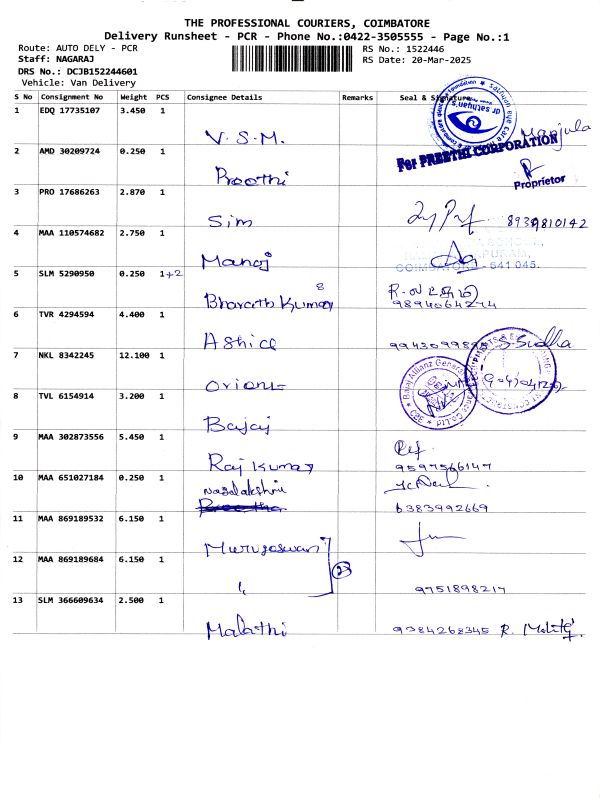 THE PROFESSIONAL COURIERS, COIMBATORE
Delivery Runsheet - PCR - Phone No.:0422-3505555 - Page No.:1
Route: AUTO DELY - PCR RS No.: 1522446
Staff: NAGARAJ RS Date: 20-Mar-2025
DRS No.: DCJB152244601
Vehicle: Van Delivery
S No Consignment No Weight PCS Consignee Details Remarks Seal & Signature
1 EDQ 17735107 3.450 1
V.S.M. Manjula
2 AMD 30209724 0.250 1
For PREETHI CORPORATION
Preethi
Proprietor
3 PRO 17686263 2.870 1
Sim
4 MAA 110574682 2.750 1
Manoj
COIMBATORE - 641 045.
5 SLM 5290950 0.250 1+2
Bharath Kumar
9894064274
6 TVR 4294594 4.400 1
Ashica S. Sudha
7 NKL 8342245 12.100 1
Orion
8 TVL 6154914 3.200 1
Bajaj
9 MAA 302873556 5.450 1
Raj Kumar 9597566147
10 MAA 651027184 0.250 1
6383992669
11 MAA 869189532 6.150 1
Murugeswari
2
12 MAA 869189684 6.150 1
9751898217
13 SLM 366609634 2.500 1
Malathi 9384268345 R.